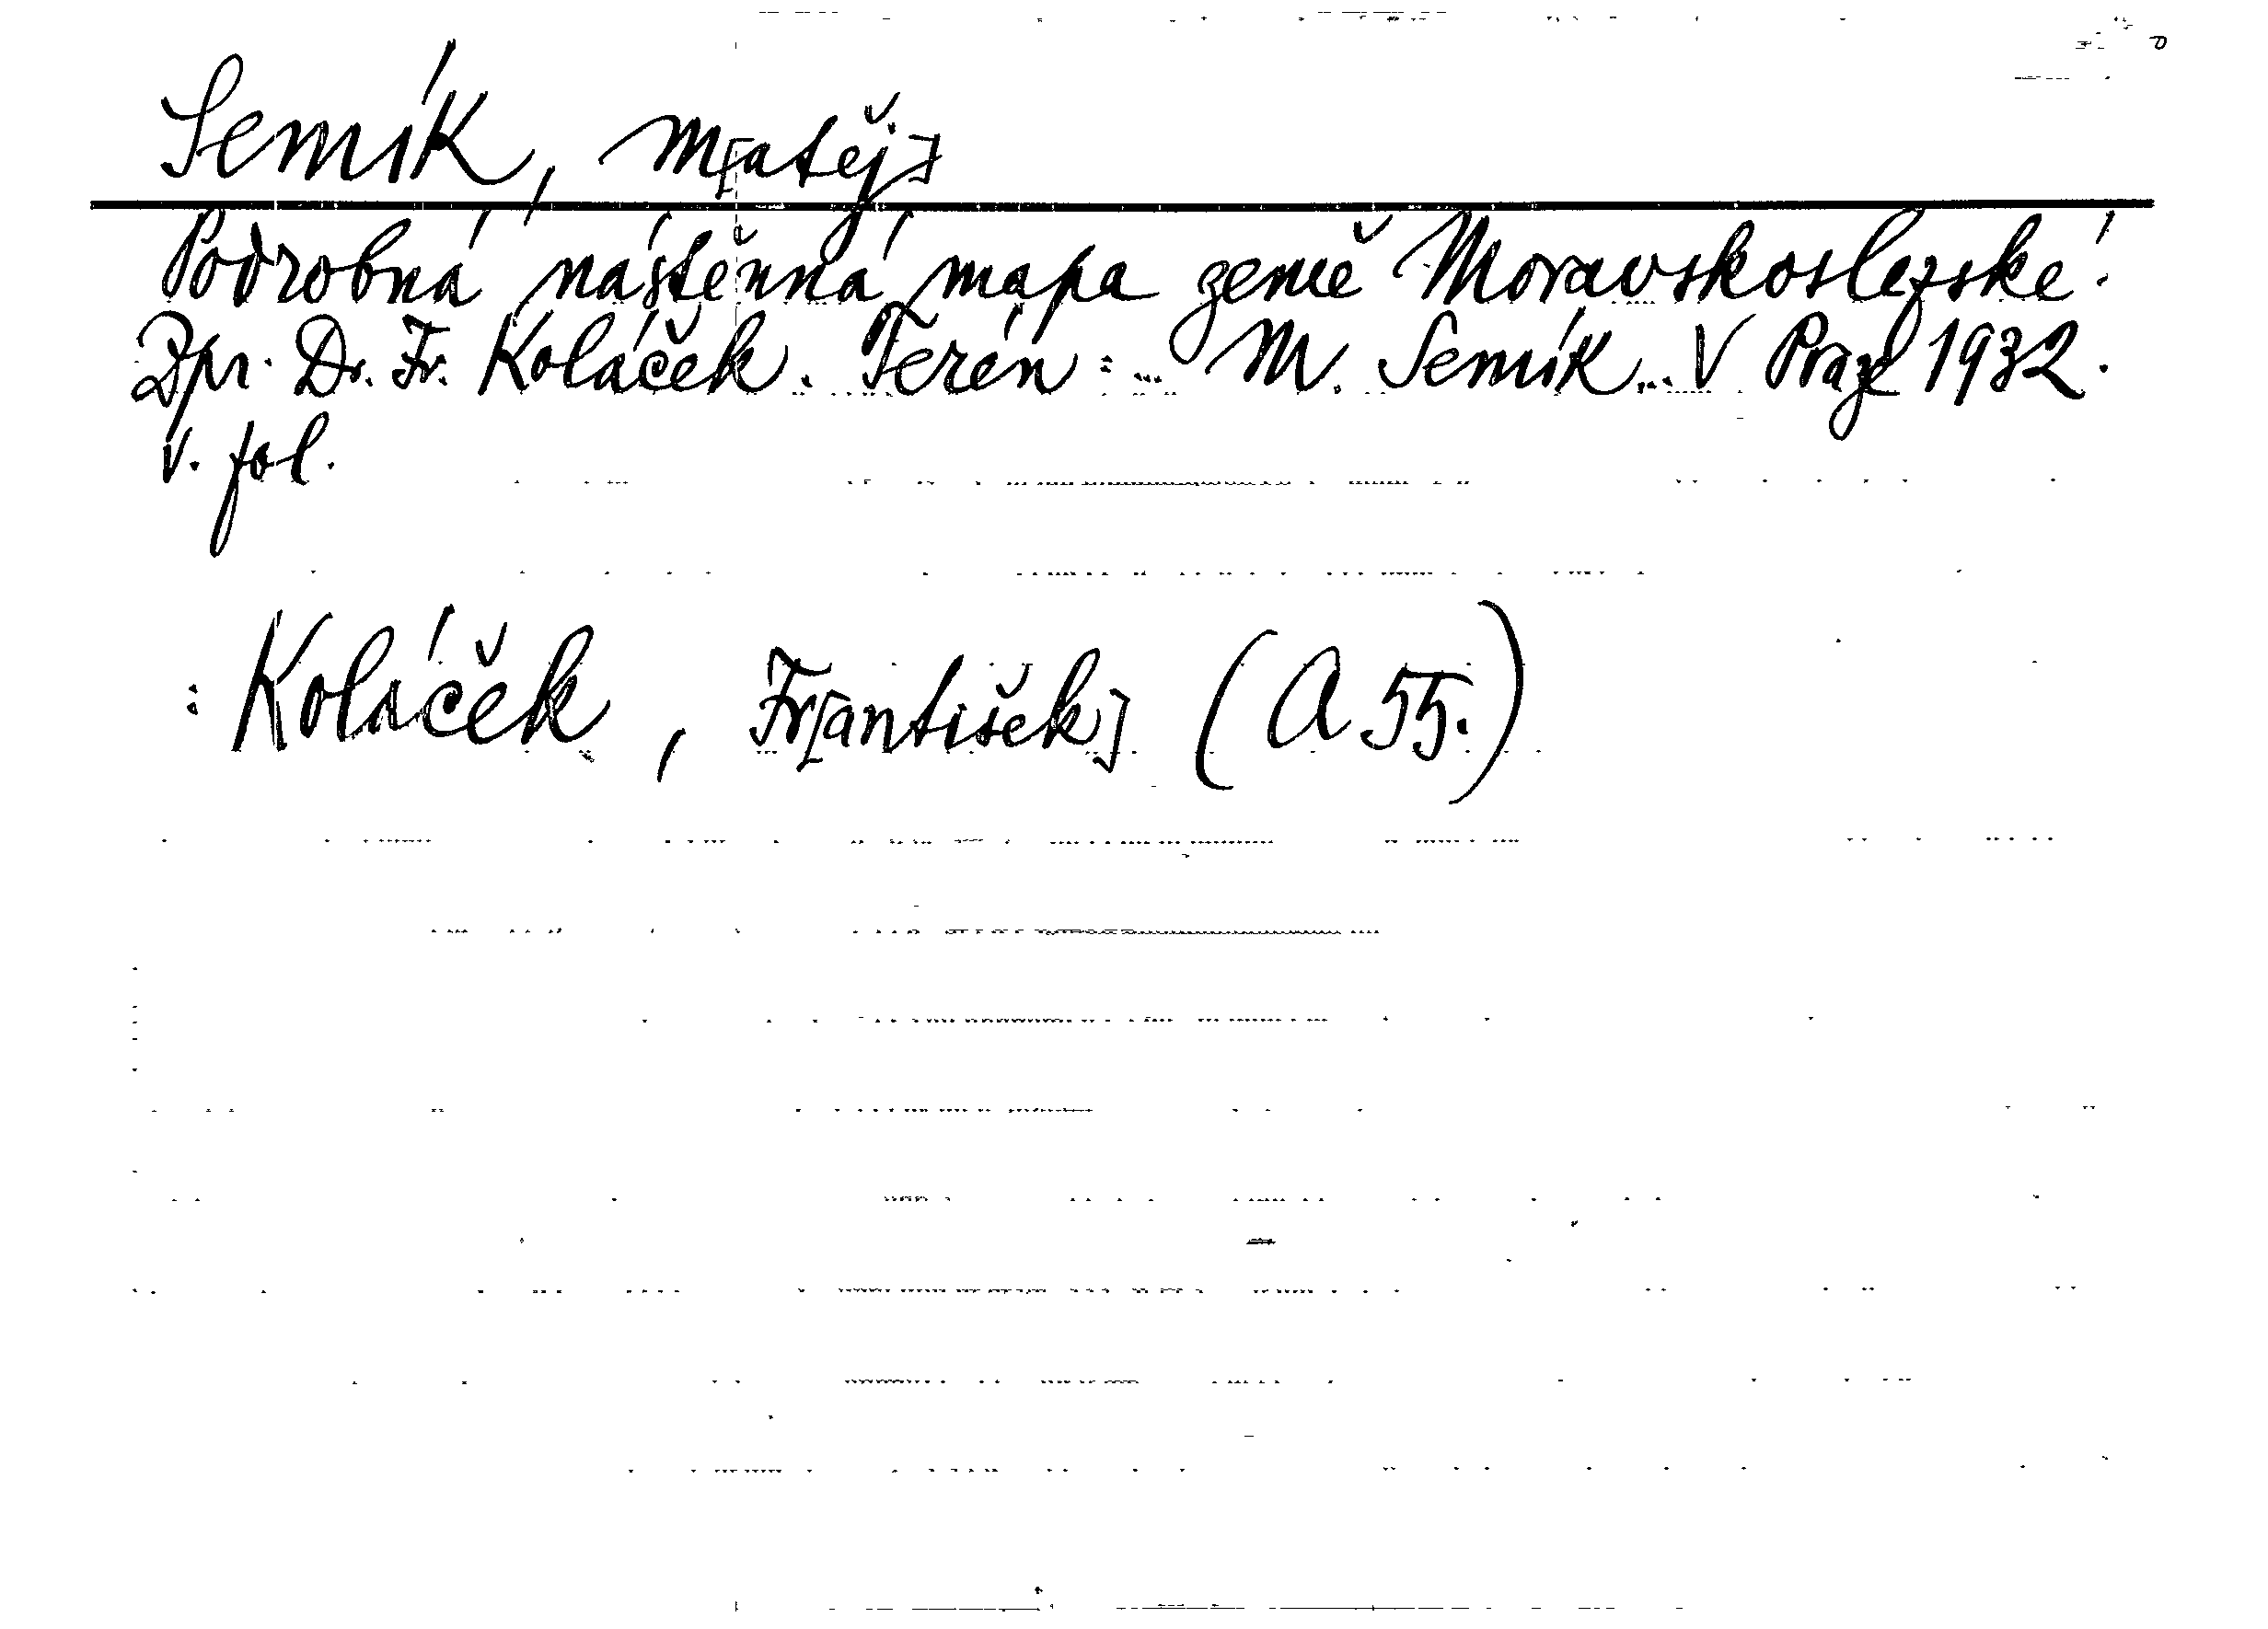 Semík, M[atěj]
Podrobná nástěnná mapa země Moravskoslezské.
Zpr. Dr. Fr. Koláček. Terén: M. Semík. V Praze 1932.
v. fol.
: Koláček, Fr[antišek] (A.55.)